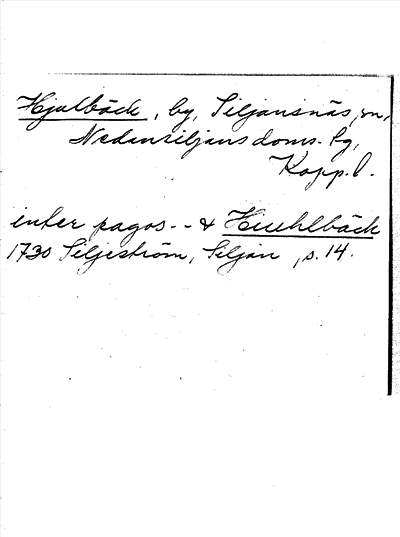 Hjulbäck, by, Siljansnäs sn,
Nedansiljans doms. fg,
Kopp. l.
inter pagos -- & Hiuhlbäck
1730 Siljeström, Siljan, s. 14.